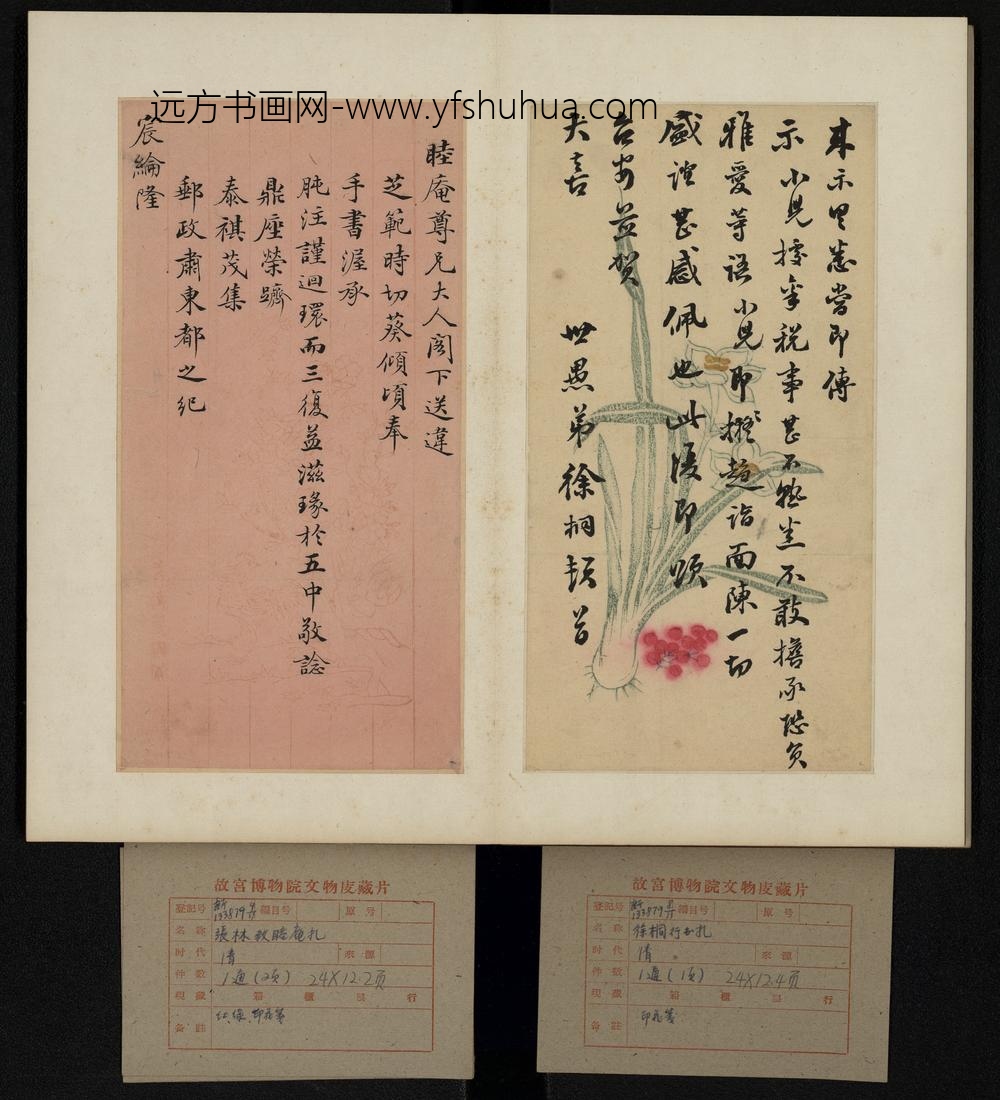 远方书画网-www.yfshuhua.com
来示里悉當即傳
示小兒據率税事甚不熟悉不敢擔承階負
雅愛等語小兒即擬趨詣面陳一切
盛誼甚感佩也此復即頌
台安並賀
大喜
世愚弟徐桐頓首
睦庵尊兄大人閣下送違
芝範時切葵傾頃奉
手書渥承
肫注謹迴環而三復益滋瑑於五中敬諗
鼎座榮躋
泰祺茂集
郵政肅東都之紀
宸綸隆
故宮博物院文物庋藏片
登記号 新133879 編目号 原号
名称 張林致睦庵札
时代 清 來源
件数 1通(2页) 24X12.2页
現藏 箱 櫃 屉 行
备註 印花箋
故宮博物院文物庋藏片
登記号 新133879 編目号 原号
名称 徐桐行书札
时代 清 來源
件数 1通(1页) 24X12.4页
現藏 箱 櫃 屉 行
备註 印花箋